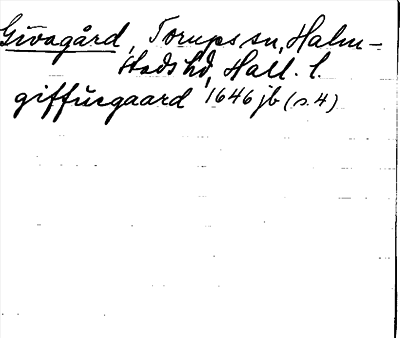 Givagård, Torups sn, Halm-
stads hd, Hall. l.
giffùsgaard 1646 jb (s. 4)